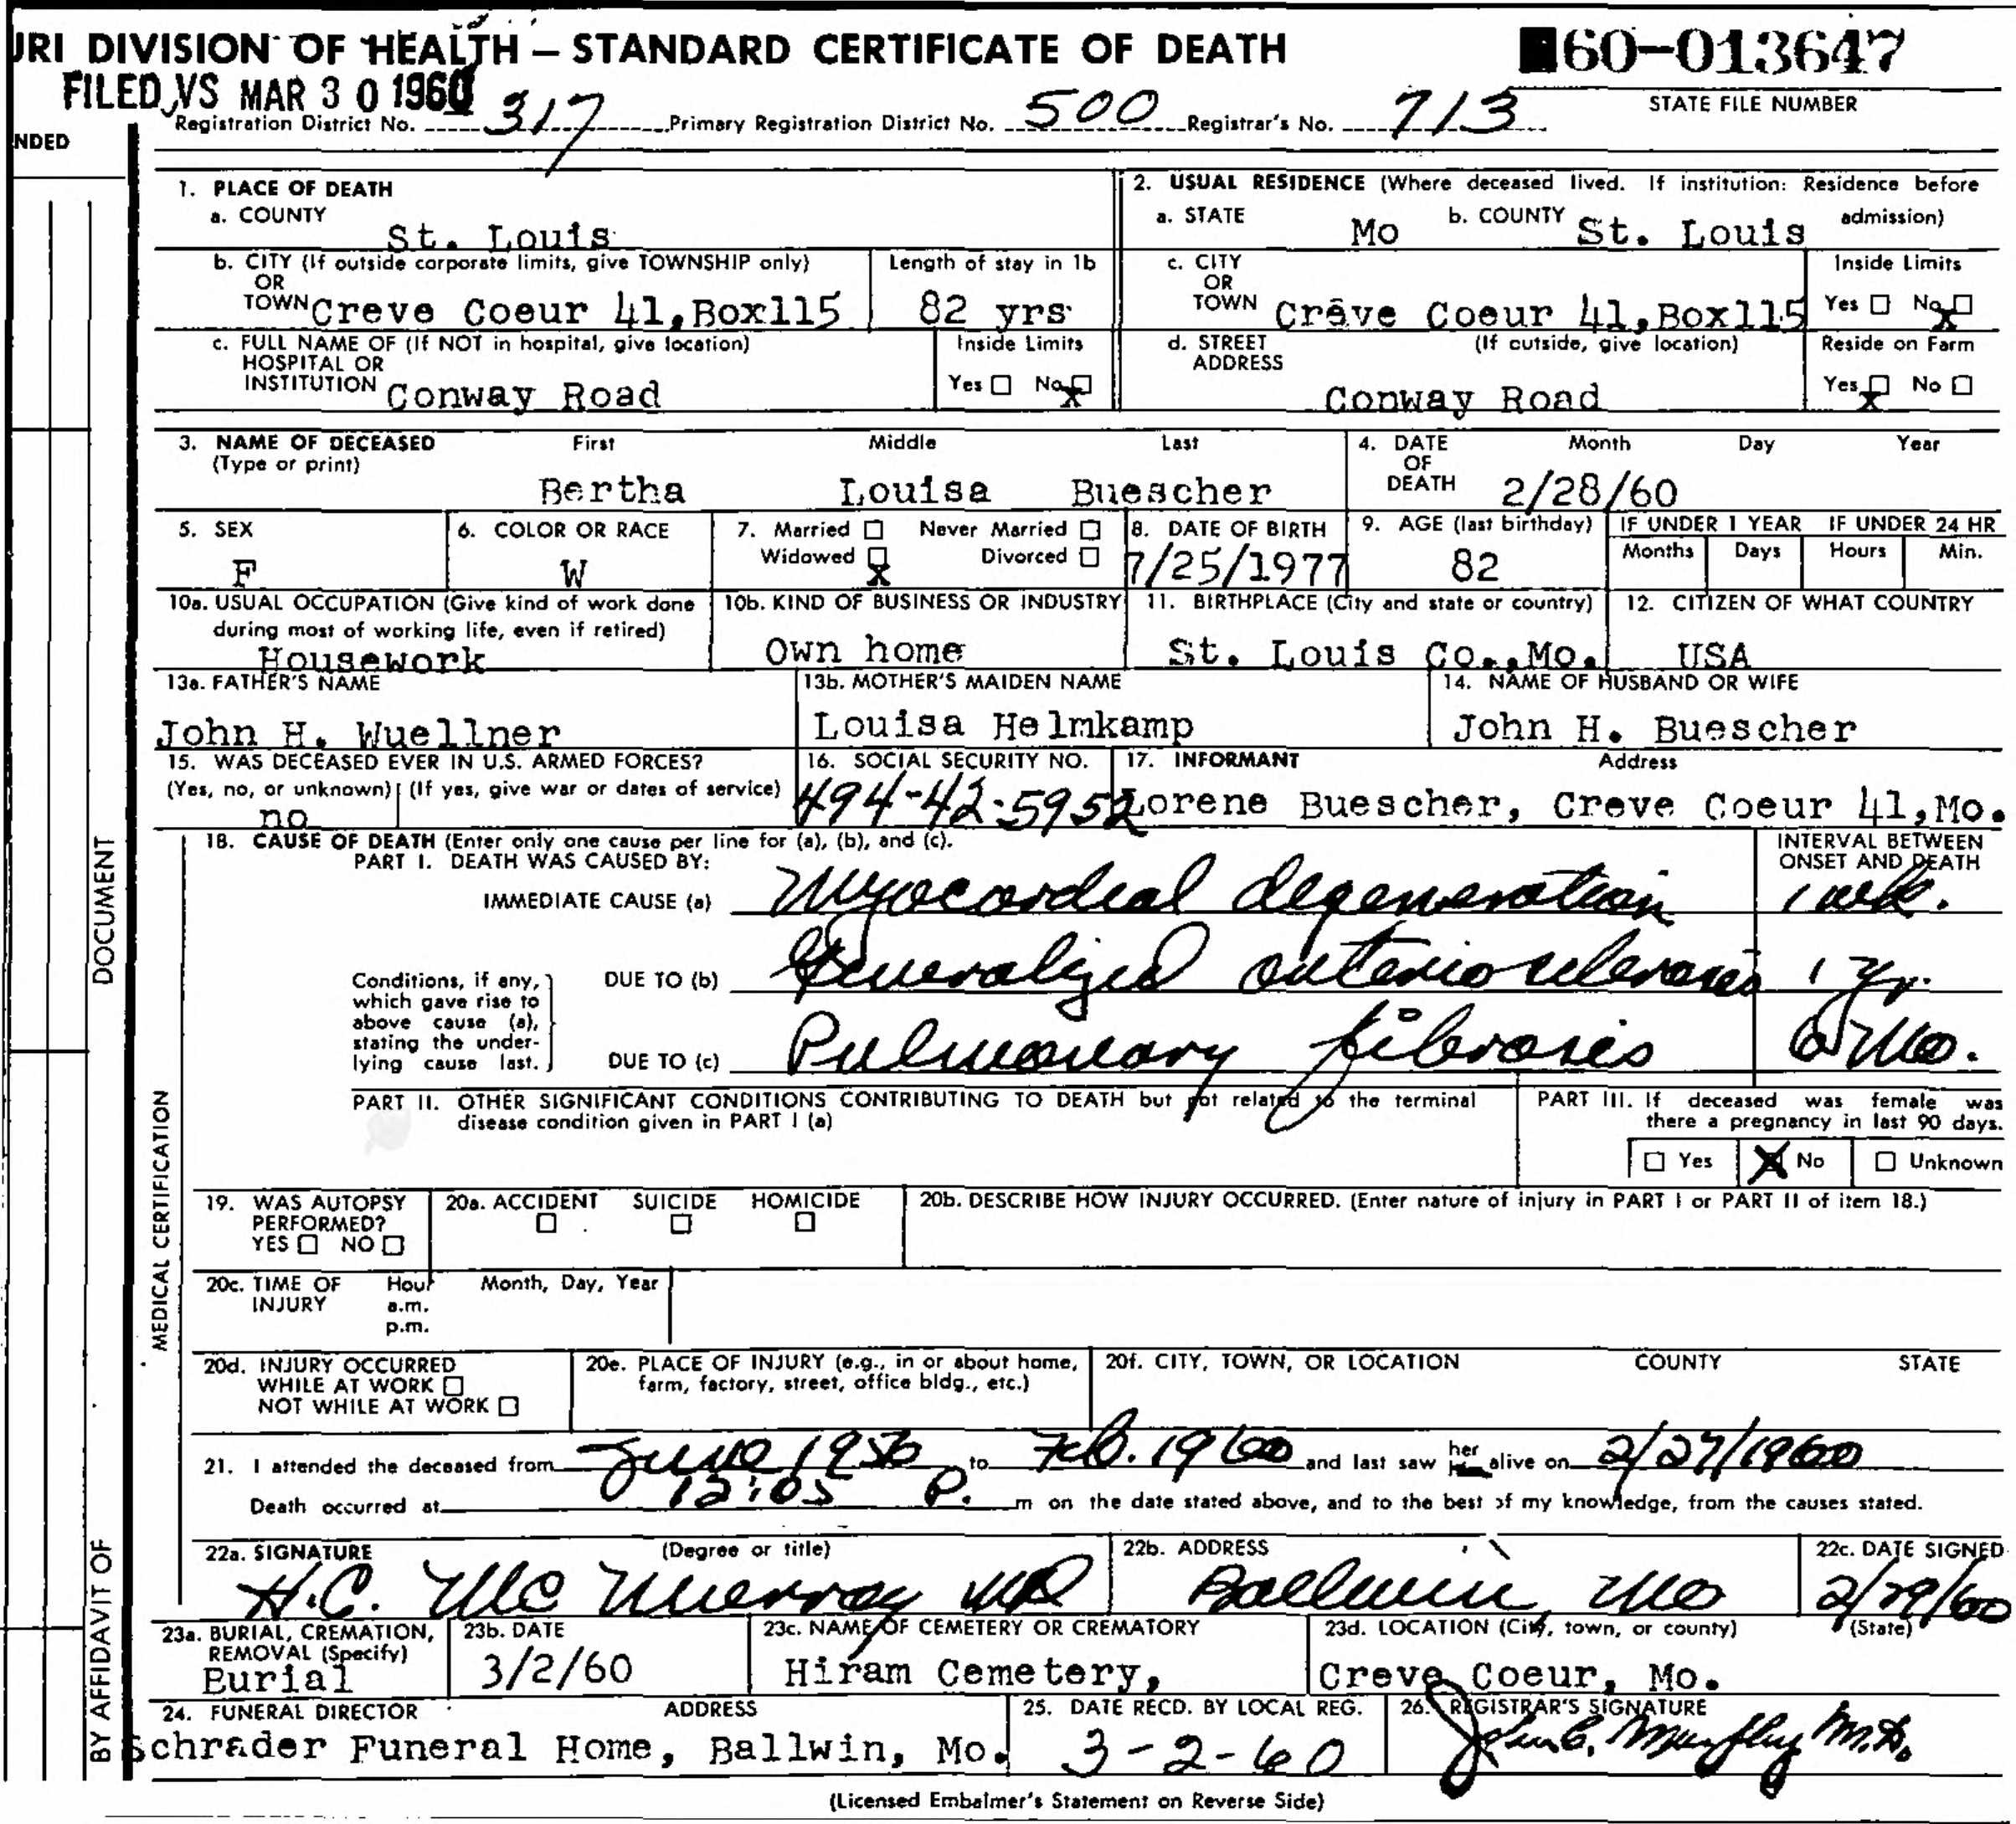 JRI DIVISION OF HEALTH — STANDARD CERTIFICATE OF DEATH
60-013647
STATE FILE NUMBER
FILED VS MAR 30 1960
Registration District No. 317 Primary Registration District No. 500 Registrar's No. 713
NDED
1. PLACE OF DEATH
a. COUNTY
St. Louis
2. USUAL RESIDENCE (Where deceased lived. If institution: Residence before admission)
a. STATE Mo b. COUNTY St. Louis
b. CITY (If outside corporate limits, give TOWNSHIP only)
OR
TOWN Creve Coeur 41,Box115
Length of stay in 1b
82 yrs
c. CITY
OR
TOWN Creve Coeur 41,Box115
Inside Limits
Yes □ No □ X
c. FULL NAME OF (If NOT in hospital, give location)
HOSPITAL OR
INSTITUTION Conway Road
Inside Limits
Yes □ No □ X
d. STREET (If outside, give location)
ADDRESS
Conway Road
Reside on Farm
Yes □ X No □
3. NAME OF DECEASED First Middle Last
(Type or print)
Bertha Louisa Buescher
4. DATE Month Day Year
OF
DEATH 2/28/60
5. SEX
F
6. COLOR OR RACE
W
7. Married □ Never Married □
Widowed □ X Divorced □
8. DATE OF BIRTH
7/25/1977
9. AGE (last birthday)
82
IF UNDER 1 YEAR IF UNDER 24 HR
Months Days Hours Min.
10a. USUAL OCCUPATION (Give kind of work done
during most of working life, even if retired)
Housework
10b. KIND OF BUSINESS OR INDUSTRY
Own home
11. BIRTHPLACE (City and state or country)
St. Louis Co.,Mo.
12. CITIZEN OF WHAT COUNTRY
USA
13a. FATHER'S NAME
John H. Wuellner
13b. MOTHER'S MAIDEN NAME
Louisa Helmkamp
14. NAME OF HUSBAND OR WIFE
John H. Buescher
15. WAS DECEASED EVER IN U.S. ARMED FORCES?
(Yes, no, or unknown) (If yes, give war or dates of service)
no
16. SOCIAL SECURITY NO.
494-42-5952
17. INFORMANT Address
Lorene Buescher, Creve Coeur 41,Mo.
18. CAUSE OF DEATH (Enter only one cause per line for (a), (b), and (c).
PART I. DEATH WAS CAUSED BY:
INTERVAL BETWEEN
ONSET AND DEATH
IMMEDIATE CAUSE (a) Myocordial degeneration 1 wk.
Conditions, if any,
which gave rise to
above cause (a),
stating the under-
lying cause last.
DUE TO (b) Generalized arteriosclerosis 1 yr.
DUE TO (c) Pulmonary fibrosis 6 Mo.
PART II. OTHER SIGNIFICANT CONDITIONS CONTRIBUTING TO DEATH but not related to the terminal
disease condition given in PART I (a)
PART III. If deceased was female was
there a pregnancy in last 90 days.
□ Yes X No □ Unknown
19. WAS AUTOPSY
PERFORMED?
YES □ NO □
20a. ACCIDENT SUICIDE HOMICIDE
□ □ □
20b. DESCRIBE HOW INJURY OCCURRED. (Enter nature of injury in PART I or PART II of item 18.)
20c. TIME OF Hour Month, Day, Year
INJURY a.m.
p.m.
20d. INJURY OCCURRED
WHILE AT WORK □
NOT WHILE AT WORK □
20e. PLACE OF INJURY (e.g., in or about home,
farm, factory, street, office bldg., etc.)
20f. CITY, TOWN, OR LOCATION COUNTY STATE
21. I attended the deceased from June 1956 to Feb. 1960 and last saw her alive on 2/27/1960
Death occurred at 12:05 P. m on the date stated above, and to the best of my knowledge, from the causes stated.
22a. SIGNATURE (Degree or title)
H.C. Mc Murray MD
22b. ADDRESS
Ballwin, Mo
22c. DATE SIGNED
2/29/60
23a. BURIAL, CREMATION,
REMOVAL (Specify)
Burial
23b. DATE
3/2/60
23c. NAME OF CEMETERY OR CREMATORY
Hiram Cemetery,
23d. LOCATION (City, town, or county) (State)
Creve Coeur, Mo.
24. FUNERAL DIRECTOR ADDRESS
Schrader Funeral Home, Ballwin, Mo.
25. DATE RECD. BY LOCAL REG.
3-2-60
26. REGISTRAR'S SIGNATURE
John C. Murphy M.D.
(Licensed Embalmer's Statement on Reverse Side)
DOCUMENT
MEDICAL CERTIFICATION
BY AFFIDAVIT OF